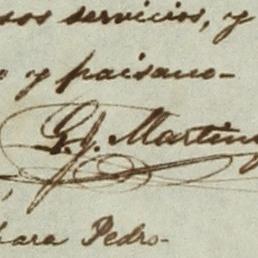 sos servicios, y
o y paisano-
G. J. Martíne
para Pedro-